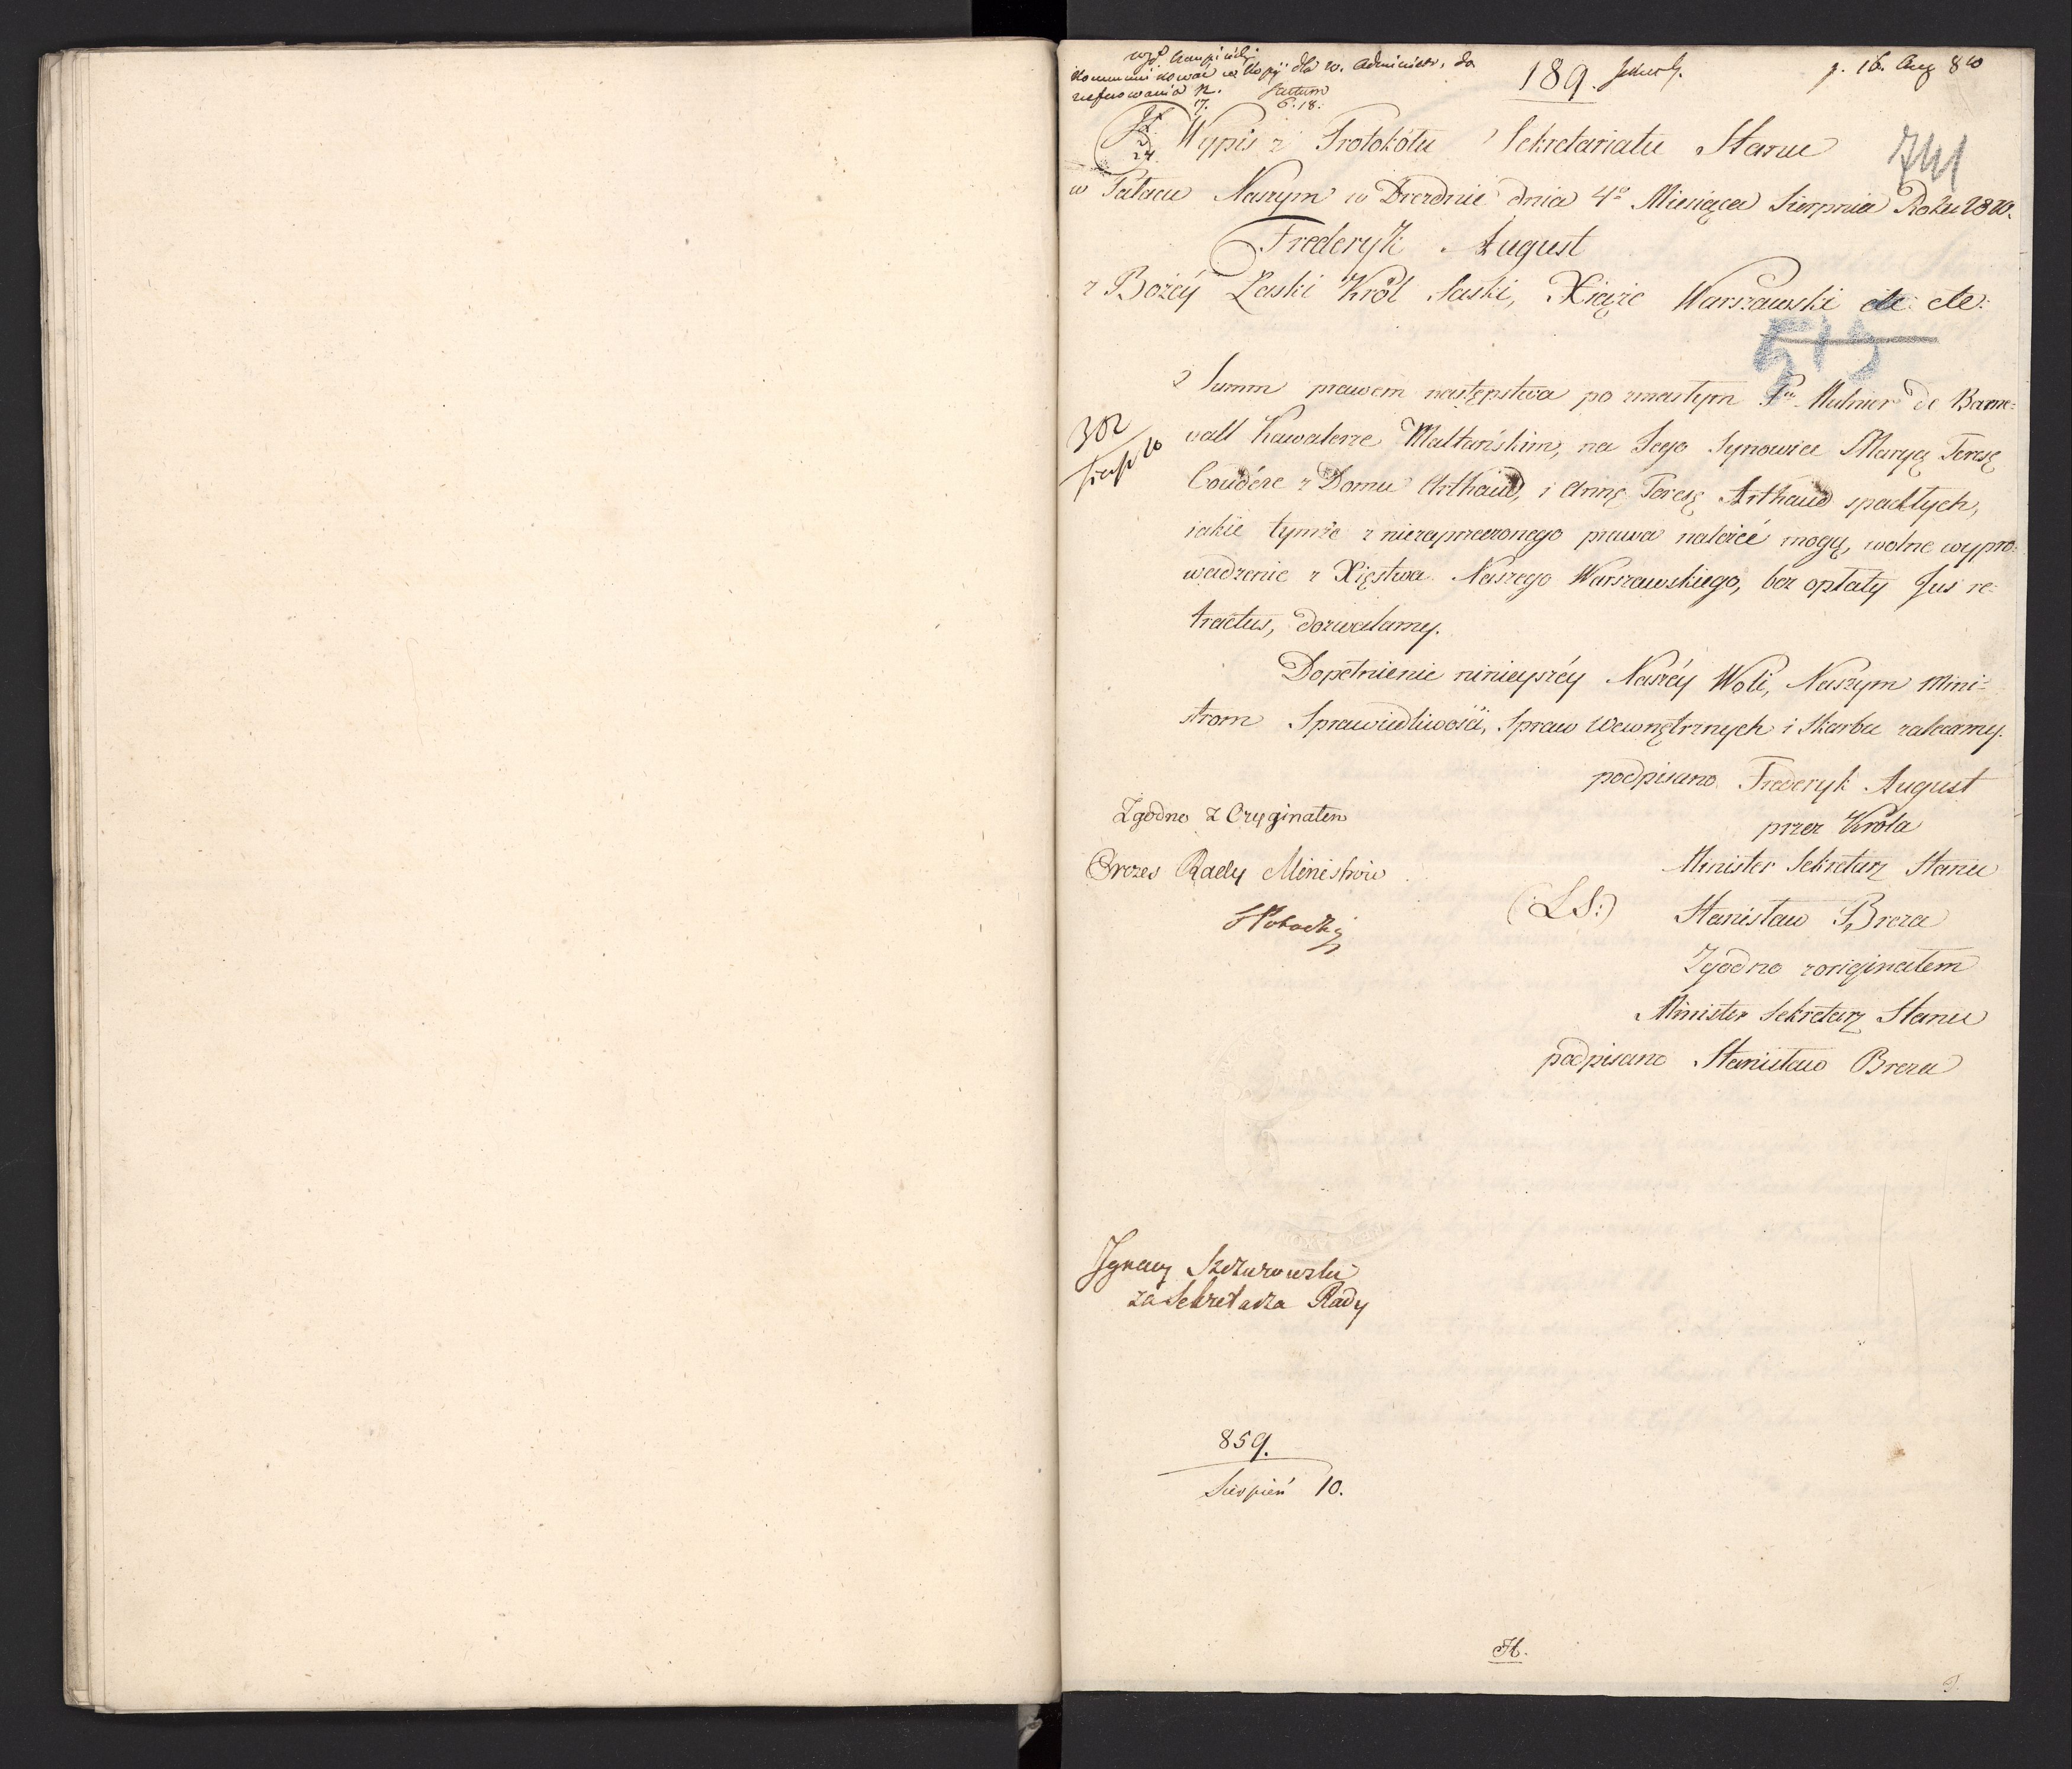 kommunikować w kopij dla w. Administr. do
189.
p. 16. Aug 810
factum
17. 6. 18.
24
Wypis z Protokółu Sekretariatu Stanu
741
w Pałacu Naszym w Dreznie dnia 4º Miesiąca Sierpnia Roku 1810.
Frederyk August
z Bożéy Łaski Król Saski, Xiąże Warszawski etc: etc:
513
Summ prawem następstwa po zmarłym Pu Mulnier de Barne=
302
Sierp 10
vall Kawalerze Maltańskim, na Jego Synowice Maryę Teresę
Coudére z Domu Arthaud, i Annę Teresę Arthaud spadłych,
iakie tymże z niezaprzeczonego prawa należeć mogą, wolne wypro=
wadzenie z Xięstwa Naszego Warszawskiego, bez opłaty Jus re=
tractus, dozwalamy.
Dopełnienie ninieyszéy Naszéy Woli, Naszym Mini=
strom Sprawiedliwości, Spraw Wewnętrznych i Skarbu zalecamy.
podpisano Frederyk August
przez Króla
Minister Sekretarz Stanu
(LS:) Stanisław Breza
Zgodno z originałem
Minister Sekretarz Stanu
podpisano Stanisław Breza
Zgodno z Oryginałem
Prezes Rady Ministrów
S Potocki
Ignacy Szczurowski
za Sekretarza Rady
859.
Sierpień 10.